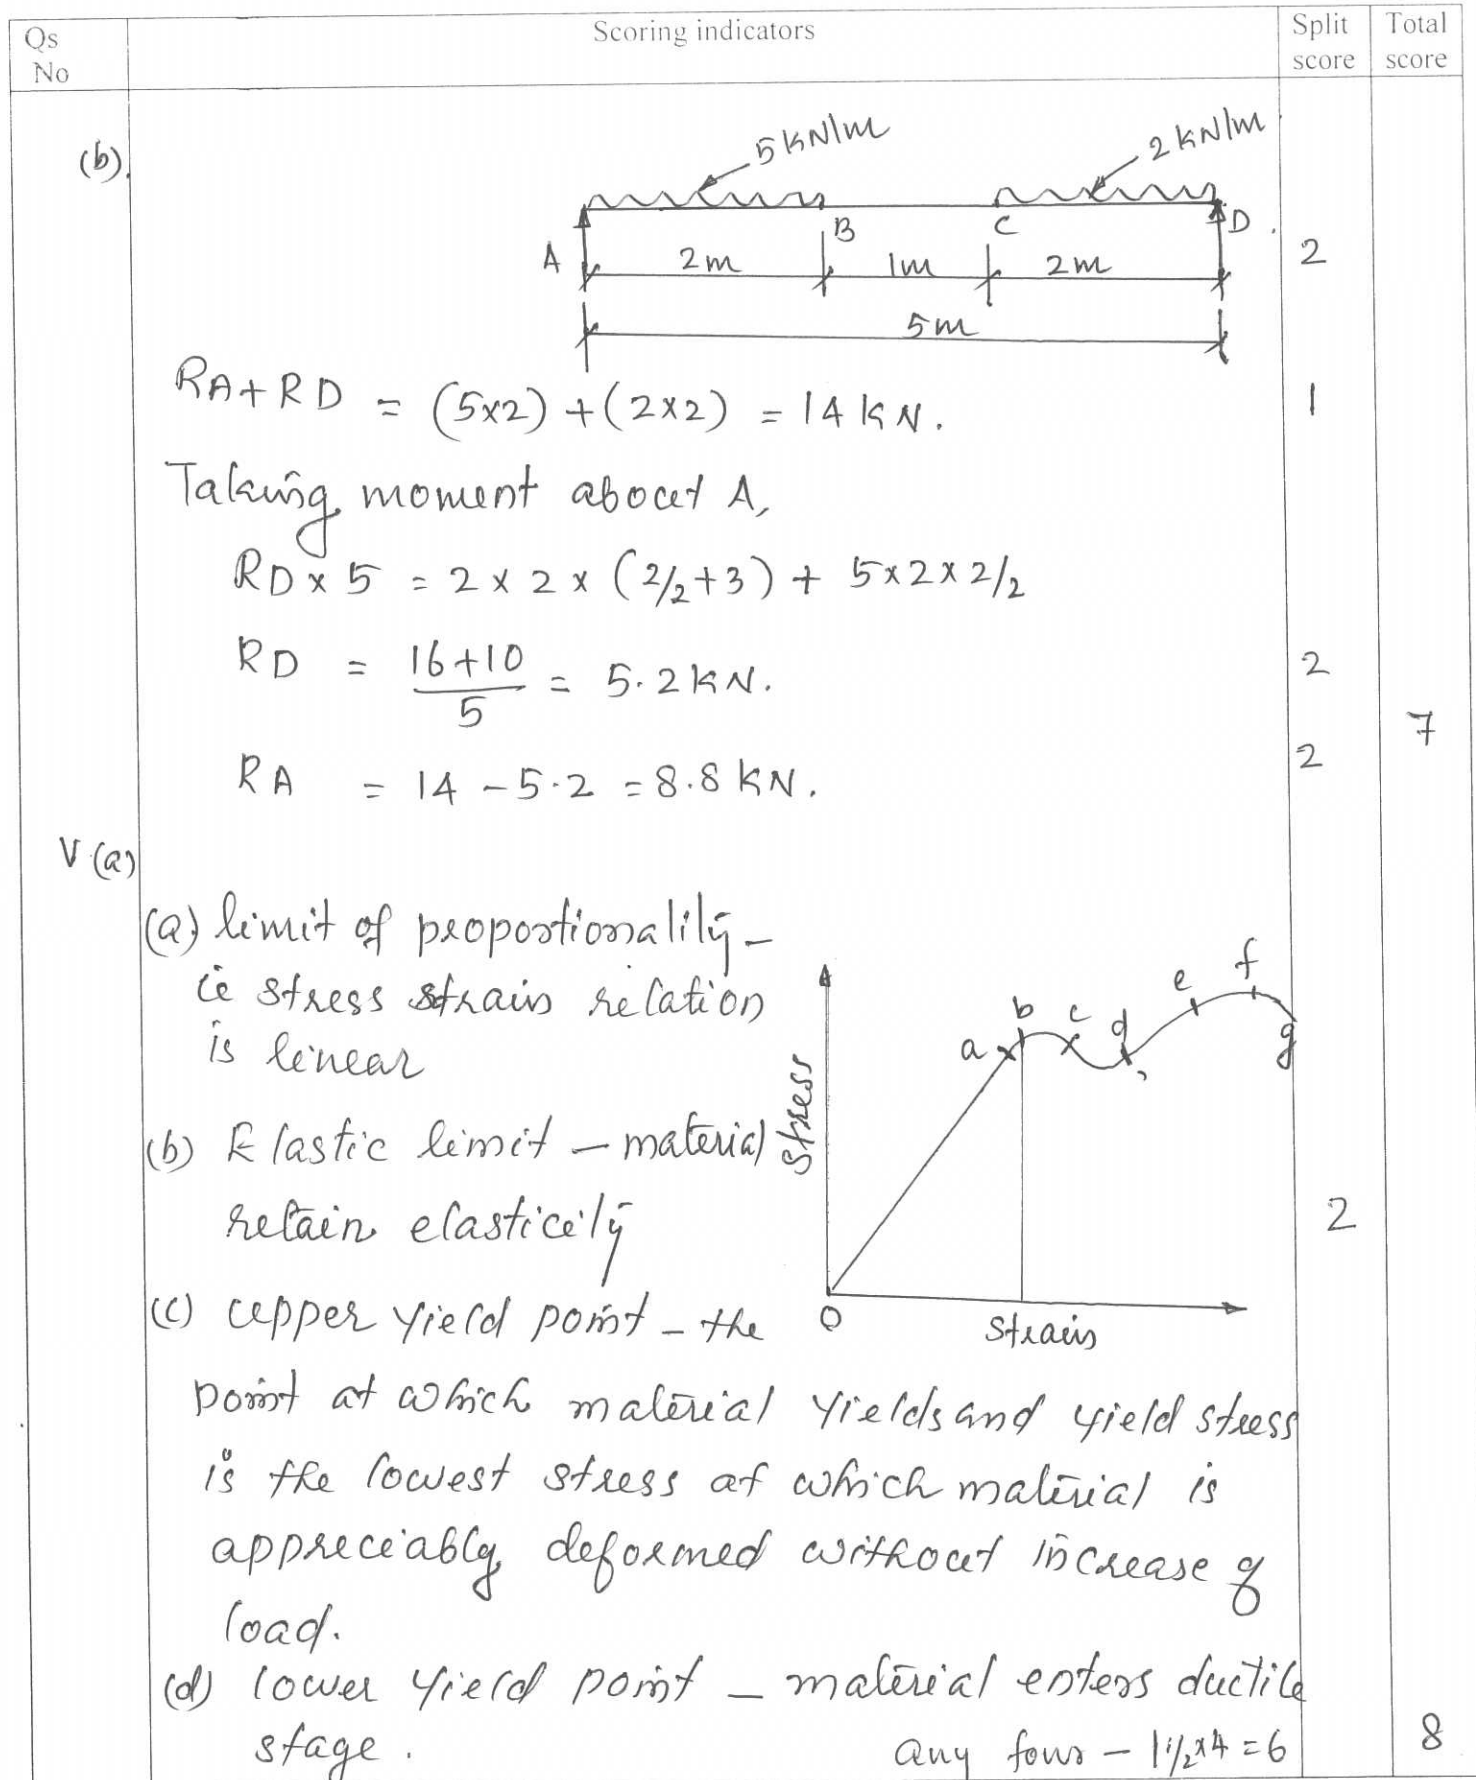 Qs No
Scoring indicators
Split score
Total score
(b).
5 kN/m
2 kN/m
A
B
C
D
2m
1m
2m
5m
2
RA + RD = (5x2) + (2x2) = 14 kN.
1
Taking moment about A,
RD x 5 = 2 x 2 x (2/2+3) + 5x2x2/2
RD = 16+10/5 = 5.2 kN.
2
7
RA = 14 - 5.2 = 8.8 kN.
2
V (a)
(a) limit of proportionality -
ie stress strain relation
is linear
(b) Elastic limit - material
retain elasticity
(c) upper yield point - the
point at which material yields and yield stress
is the lowest stress at which material is
appreciably deformed without increase of
load.
(d) lower yield point - material enters ductile
stage.
any four - 1 1/2 x4 = 6
8
Stress
Strain
O
a
b
c
d
e
f
g
2